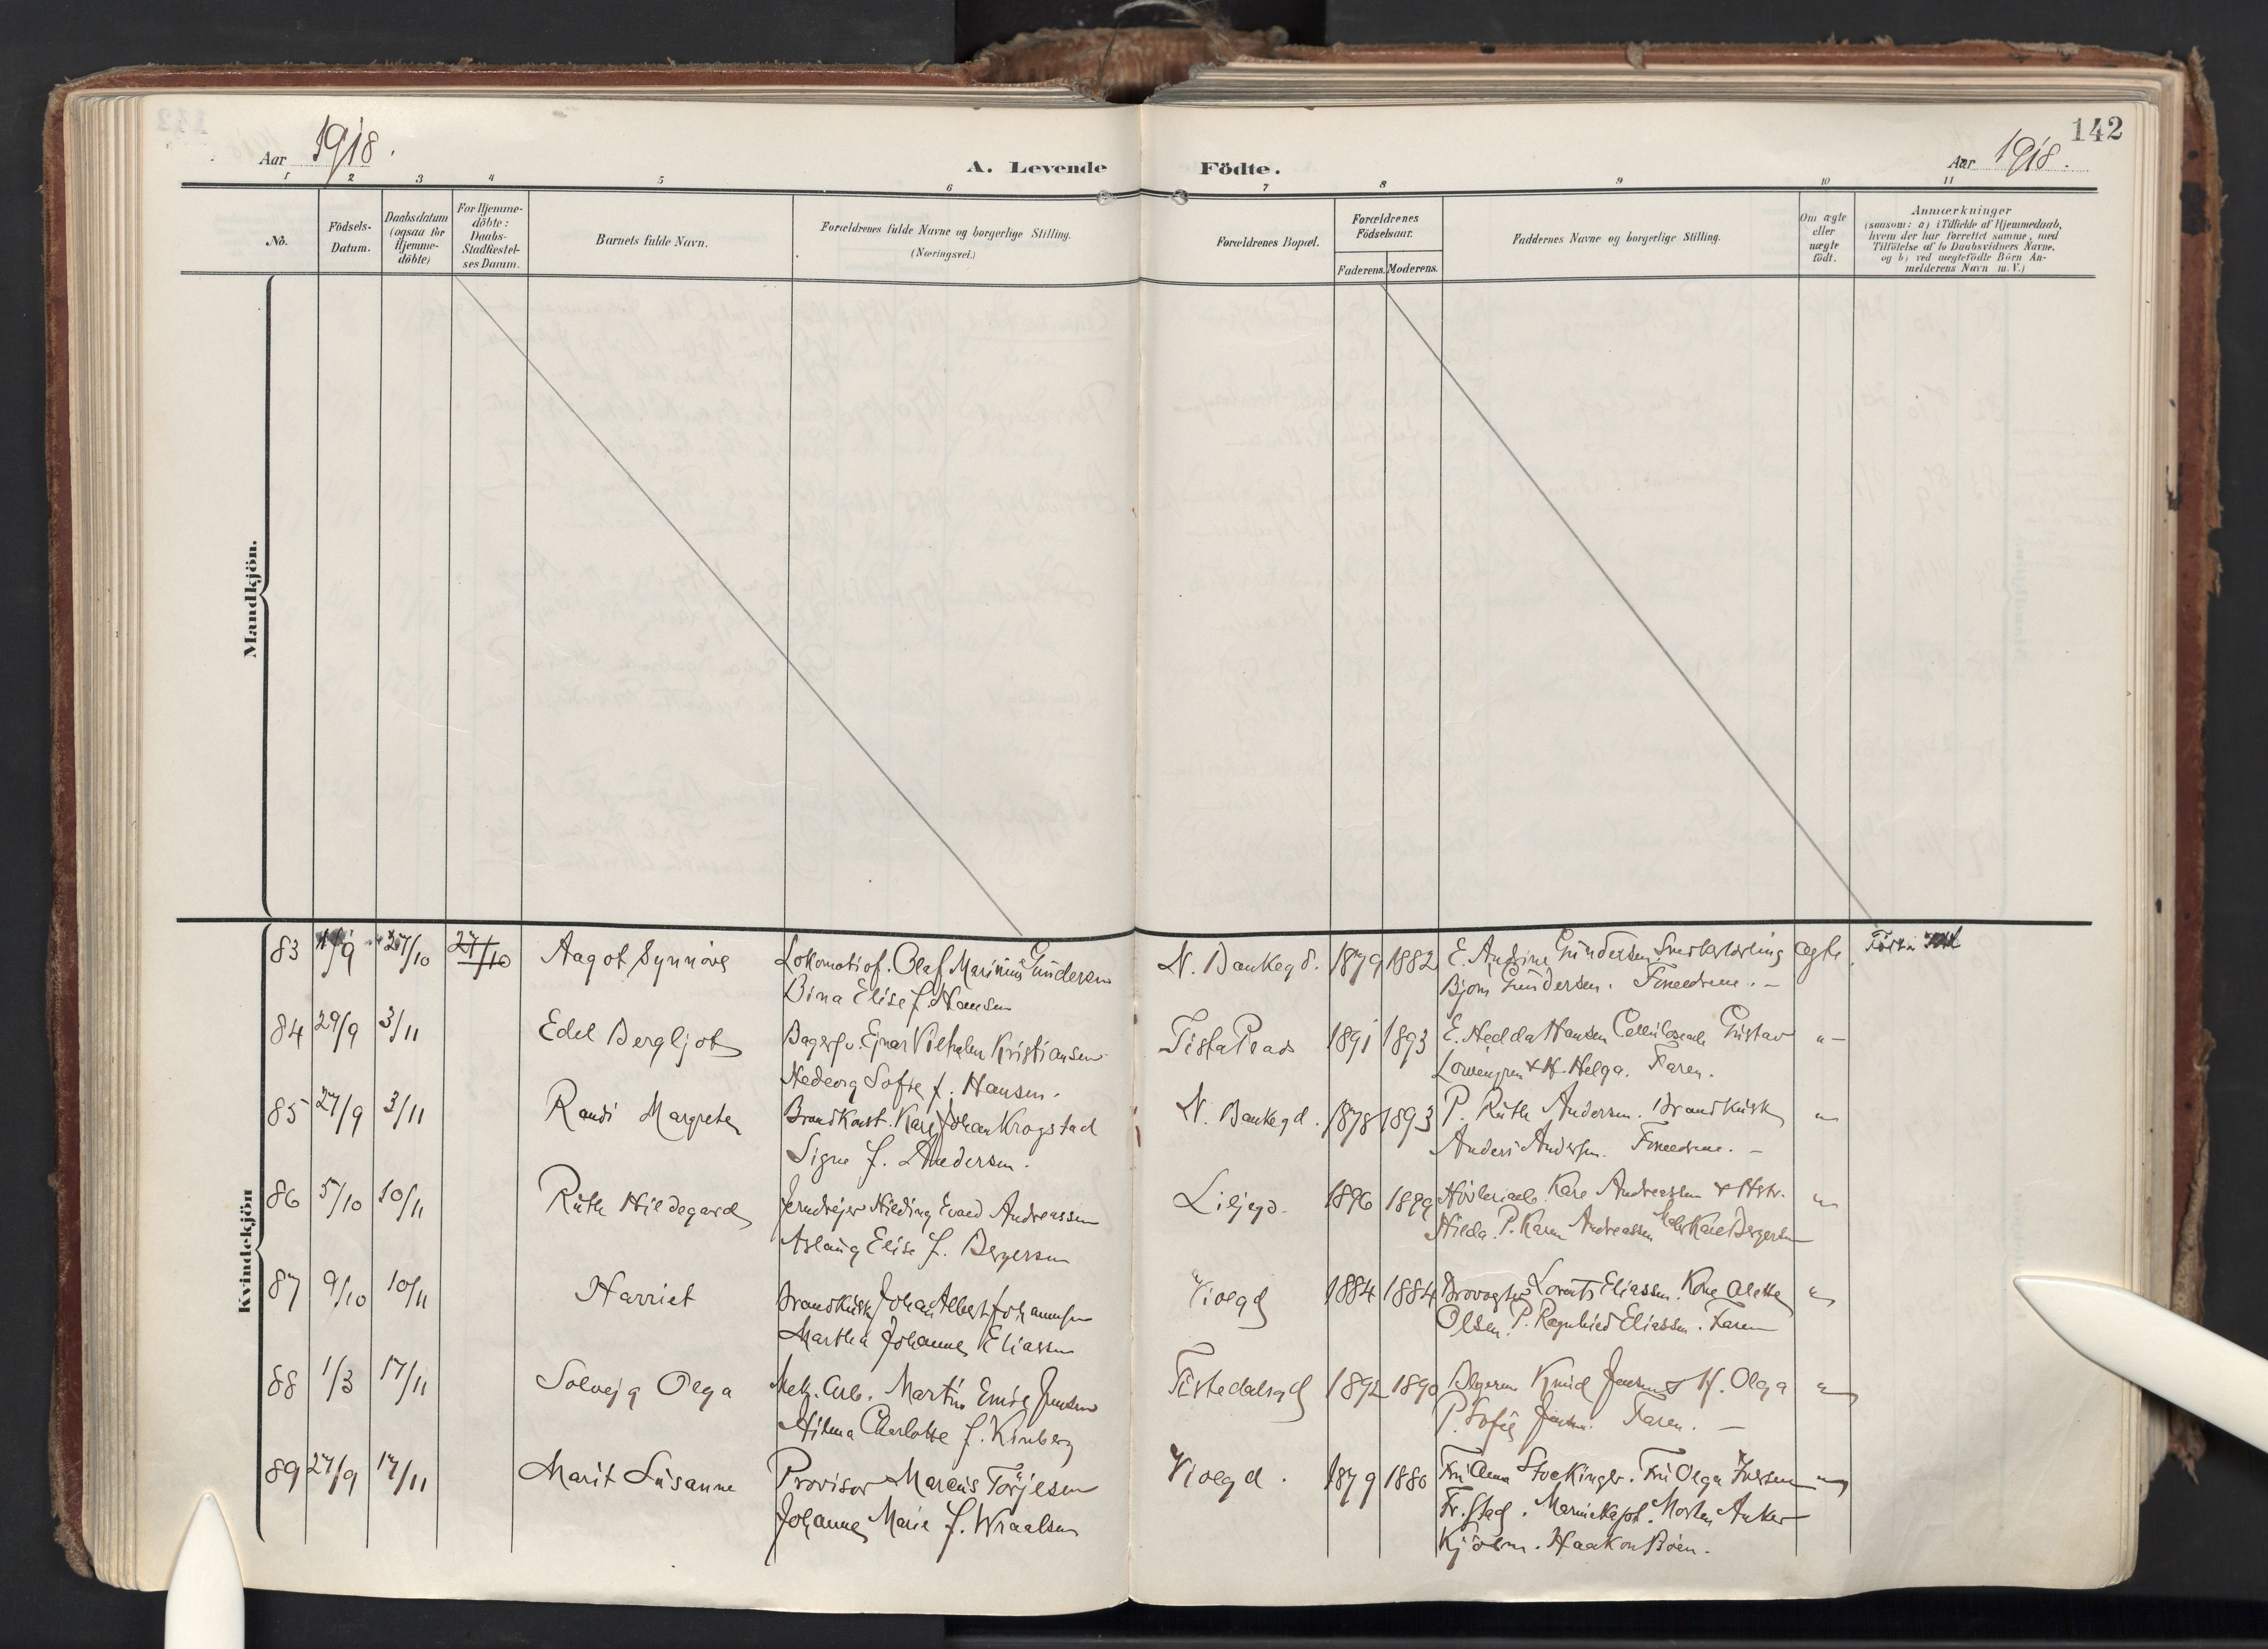 142
Aar 1918.
A. Levende Födte.
Aar 1918.
1 2 3 4 5 6 7 8 9 10 11
No.
Födsels-
Datum.
Daabsdatum
(ogsaa for
Hjemme-
döbte)
For Hjemme-
döbte:
Daabs-
Stadfæstel-
ses Datum.
Barnets fulde Navn.
Forældrenes fulde Navne og borgerlige Stilling.
(Næringsvei.)
Forældrenes Bopæl.
Forældrenes
Födselsaar.
Faderens. Moderens.
Faddernes Navne og borgerlige Stilling.
Om ægte
eller
uægte
födt.
Anmærkninger
(saasom: a) i Tilfælde af Hjemmedaab,
hvem der har forrettet samme, med
Tilföielse af to Daabsvidners Navne,
og b) ved uægtefödte Börn An-
melderens Navn m. V.)
Mandkjön.
Kvindekjön
83 /9 27/10 27/10 Aagot Synnöve Lokomotivf. Olaf Marinius Gundersen N. Bankegd. 1879 1882 E. Andrine Gundersen ægte
Dina Elise f. Hansen Bjorn Gundersen. Forældrene. –
84 29/9 3/11 Edel Bergljot Ejnar Vilhelm Kristiansen Tista 1891 1893 E. Hedda Hansen Gustav " –
Hedevig Sofie f. Hansen. & H. Helga. Faren.
85 27/9 3/11 Randi Margrete Brandkonst. Karl Johan Krogstad N. Bankegd. 1878 1893 P. Ruth Andersen. Brandkusk "
Signe f. Andersen. Anders Andersen. Forældrene. –
86 5/10 10/11 Ruth Hildegard Jerndrejer Hilding Evald Andreassen Liljegd. 1896 1899 Karl Andreassen & Hstr. "
Aslaug Elise f. Bergersen Hilda. P. Karen Andreassen Karl Bergersen
87 9/10 10/11 Harriet Brandkusk Johan Albert Johannsen Violegd 1884 1884 Brovogter Lorents Eliassen. Kone Alette "
Martha Johanne Eliassen Olsen. P. Ragnhild Eliassen. Faren
88 1/3 17/11 Solvejg Olga Mek. Arb. Martin Emil Jensen Tistedalsgd 1892 1890 Knud Jensen & H. Olga "
Hilma Charlotte f. Kinberg P. Sofie Jensen. Faren. –
89 27/9 17/11 Marit Susanne Provisor Marcus Törjesen Violegd. 1879 1880 Fru Anna Stockinger. Fru Olga Iversen "
Johanne Marie f. Wraalsen Fr.stad. Marinekapt. Morten Anker
Haakon Böen.